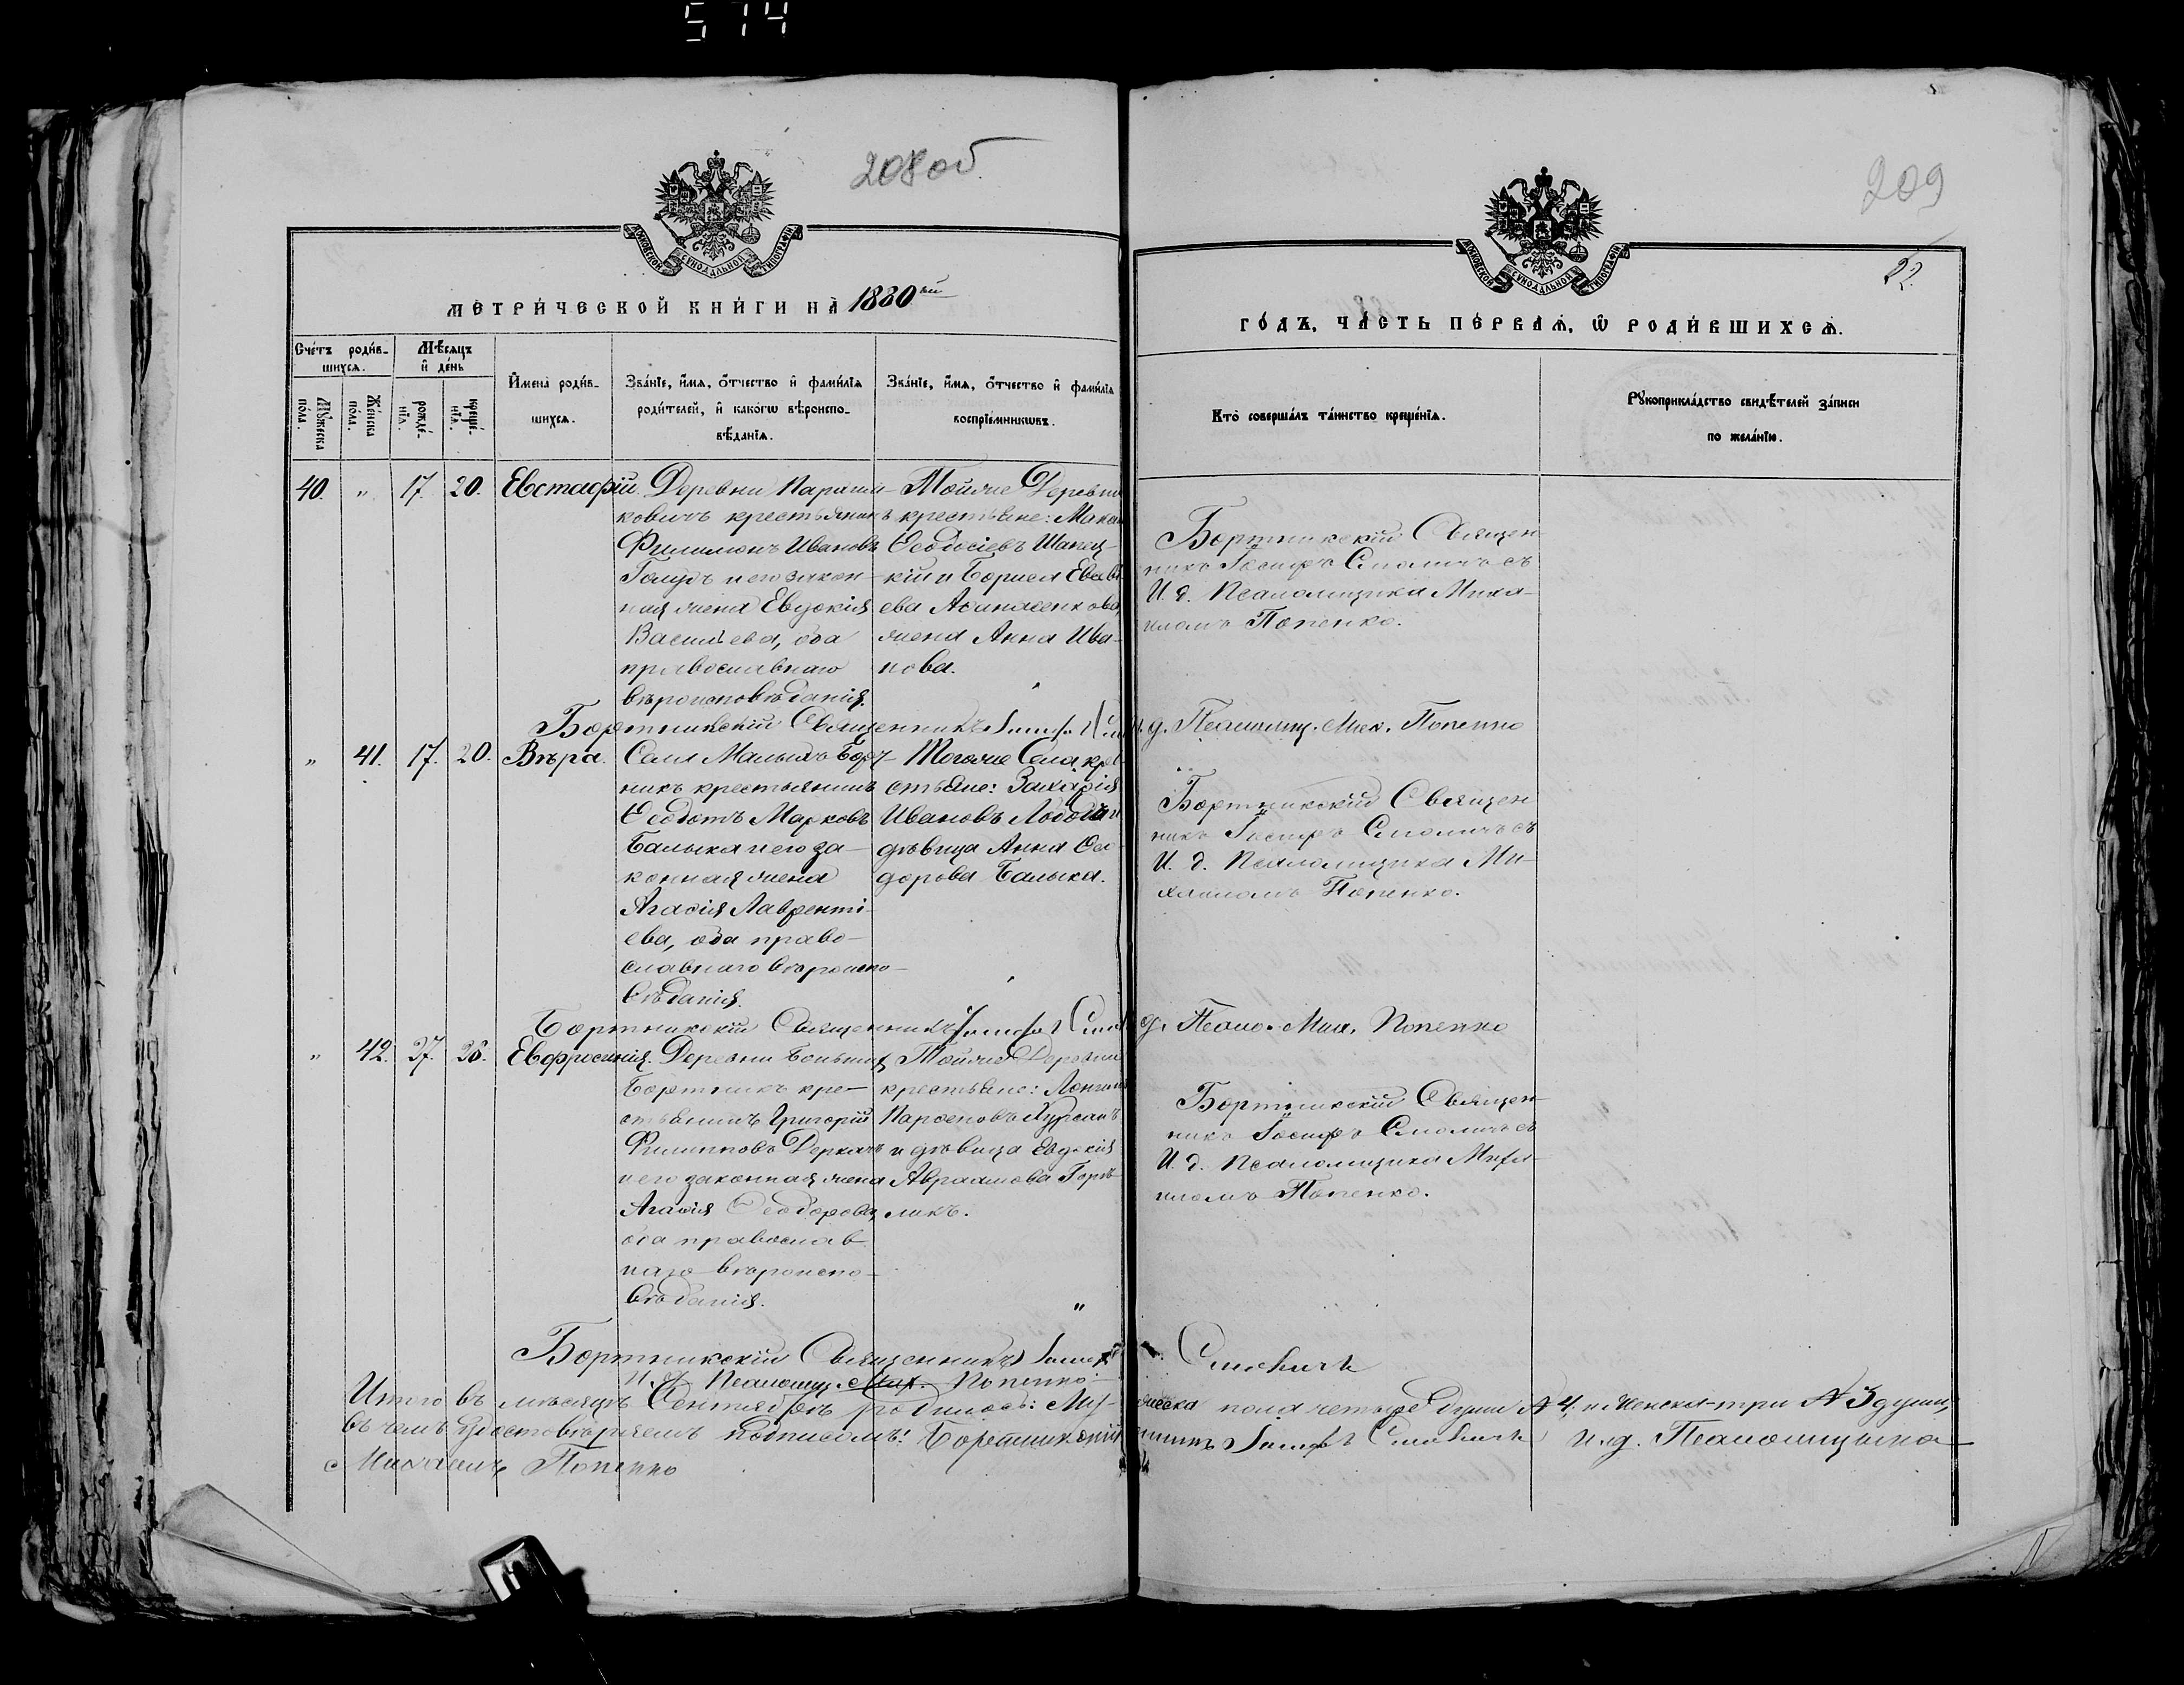 574
208об
209
22.
МОСКОВСКОЙ СѴНОДАЛЬНОЙ ТИПОГРАФІИ
МОСКОВСКОЙ СѴНОДАЛЬНОЙ ТИПОГРАФІИ
МЕТРИ́ЧЕСКОЙ КНИ́ГИ НА̀ 1880 ый
ГО́ДЪ, ЧА́СТЬ ПЕ́РВАѦ, Ѡ҆ РОДИ́ВШИХСѦ.
Сче́тъ роди́в-
шихсѧ.
Мꙋ́жеска по́ла.
Же́нска по́ла.
Мѣ́сѧцъ и҆ де́нь
рожде́-нїѧ.
креще́-нїѧ.
И҆мена̀ роди́в-
шихсѧ.
Зва́нїе, и҆́мѧ, ѻ҆́тчество и҆ фами́лїѧ
роди́телей, и҆ како́гѡ вѣроиспо-
вѣ́данїѧ.
Зва́нїе, и҆́мѧ, ѻ҆́тчество и҆ фами́лїѧ
воспрїе́мникѡвъ.
Кто̀ соверша́лъ та́инство креще́нїѧ.
Рꙋкоприкла́дство свидѣ́телей за́писи
по жела́нїю.
40. " 17. 20. Евстафій.
Деревни Параши-
ковичъ крестьянинъ
Филимонъ Ивановъ
Голубъ и его закон-
ная жена Евдокія
Васильева, оба
православнаго
вѣроисповѣданія.
Тойже Деревни
крестьяне:
Ѳеодосіевъ Шапец-
кій и Бориса
ева Аѳанасенкова
жена Анна Ива-
нова.
Бортникскій Священ-
никъ Іосифъ Смоличъ съ
И. д. Псаломщика Миха-
иломъ Попенко.
Бортникскій Священникъ Іосифъ
д. Псаломщ. Мих. Попенко
" 41. 17. 20. Вѣра.
Села Малыхъ Борт-
никъ крестьянинъ
Ѳеодотъ Марковъ
Балыка и его за-
конная жена
Агаѳія Лавренті-
ева, оба право-
славнаго вѣроиспо-
вѣданія.
Тогоже Села кре-
стьяне: Захарія
Ивановъ
дѣвица Анна
дорова Балыка.
Бортникскій Священ-
никъ Іосифъ Смоличъ съ
И. д. Псаломщика Ми-
хаиломъ Попенко.
Бортникскій Священникъ Іосифъ
д. Псало. Мих. Попенко
" 42. 27. 28. Евфросинія.
Деревни Большихъ
Бортникъ кре-
стьянинъ Григорій
Филиповъ Деркачъ
и его законная жена
Агаѳія Ѳеодорова,
оба православ-
наго вѣроиспо-
вѣданія.
Тойже Деревни
крестьяне:
Парѳеновъ
и дѣвица Евдокія
Авраамова Горѣ-
ликъ.
Бортникскій Священ-
никъ Іосифъ Смоличъ съ
И. д. Псаломщика Миха-
иломъ Попенко.
Бортникскій Священникъ Іосифъ Смоличъ
И. д. Псаломщ. Мих. Попенко
Итого въ мѣсяцѣ Сентябрѣ родилось: Мужеска пола четыре души № 4, и женска-три № 3 души,
въ чемъ удостовѣряемъ подписомъ: Бортникскій Іосифъ Смоличъ И. д. Псаломщика
Михаилъ Попенко